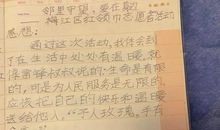 邻里守望，爱在身边
梅江区红领巾志愿者活动
感想：
通过这次活动，我体会到
了在生活中处处有温暖，就
是雷锋叔叔说的：生命是有限
的，可是为人民服务是无限的，
应该把自己的快乐和温暖
送给他人，“予人玫瑰，手有